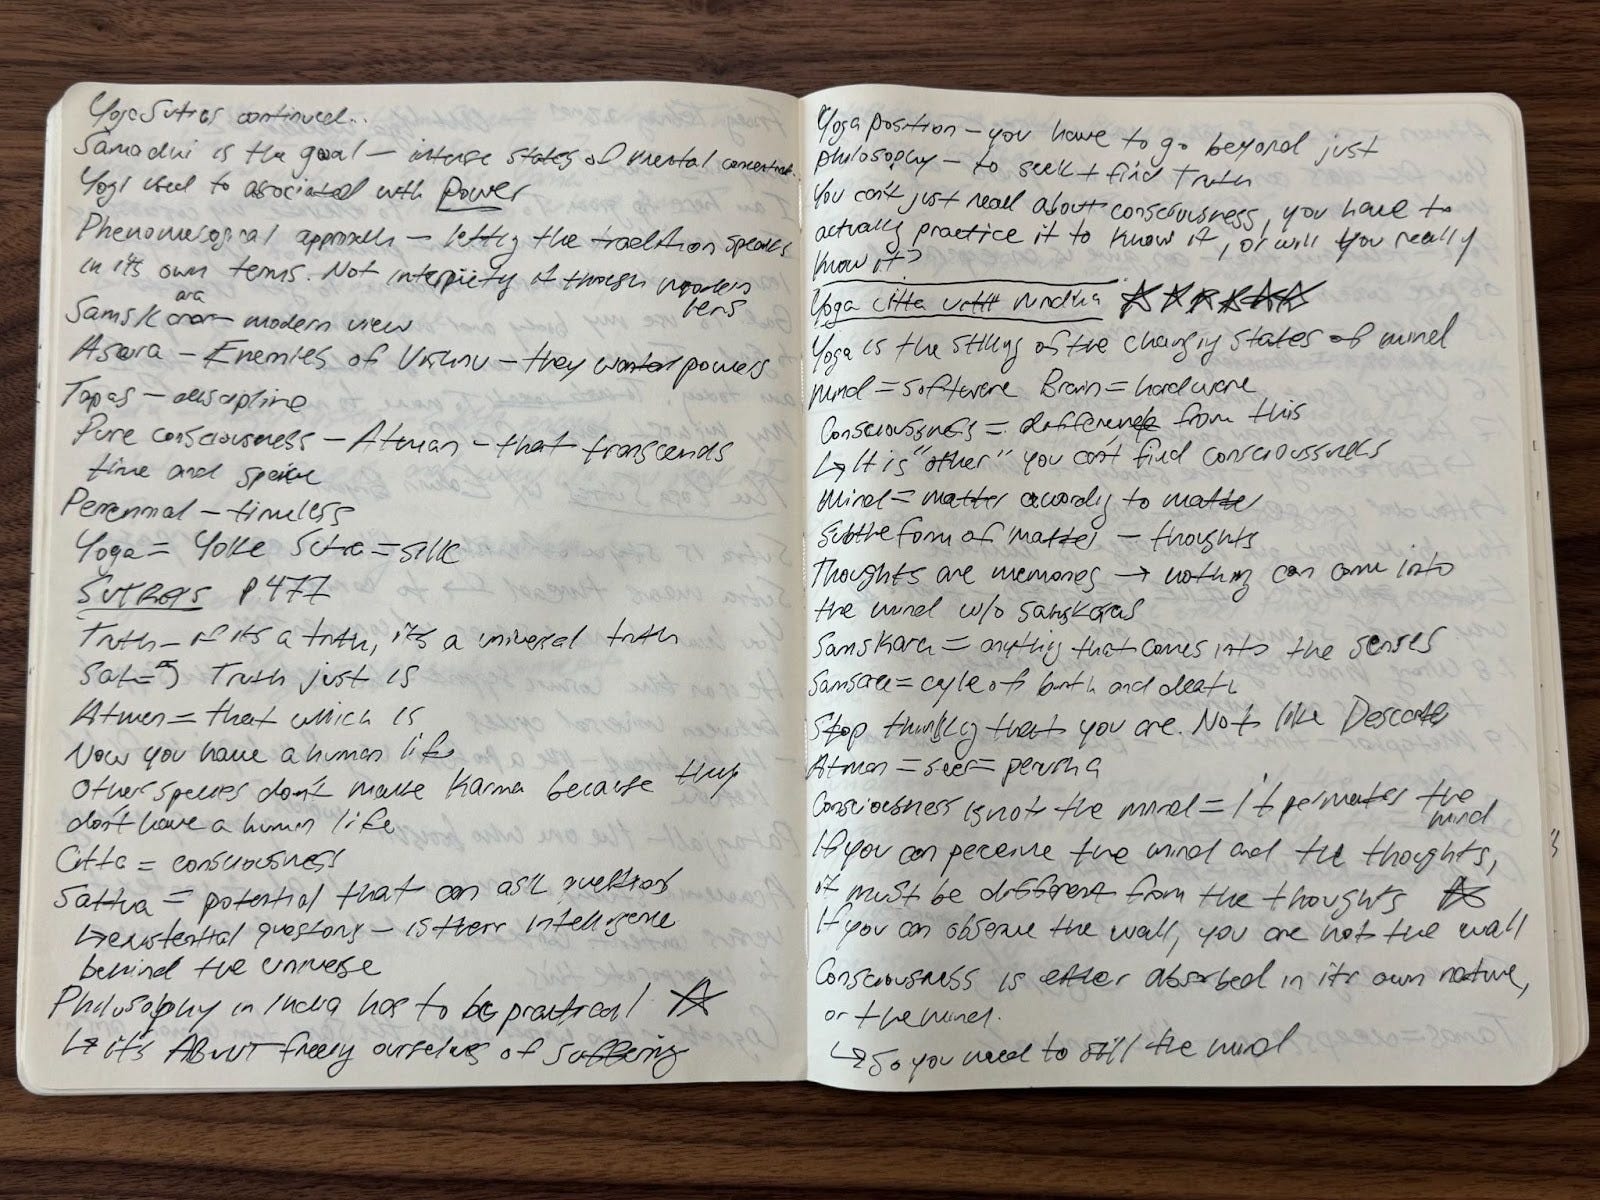 Yoga Sutras continued...
Samadhi is the goal — intense states of mental concentrat..
Yogi used to asociated with power
Phenomenological approach — letting the tradition speaks
in its own terms. Not interpreting it through modern
lens
Samskara — modern view
Asura — Enemies of Vishnu — they wanted powers
Tapas — discipline
Pure consciousness — Atman — that transcends
time and space
Perennial — timeless
Yoga = Yolke Sutra = silk
SUTRAS P 477
Truth — if its a truth, it's a universal truth
Sat = Truth just is
Atman = that which is
Now you have a human life
Other species don't make Karma because they
don't have a human life
Citta = consciousness
Sattva = potential that can ask question
↳ existential questions — is there intelligence
behind the universe
Philosophy in India has to be practical ☆
↳ it's ABOUT freeing ourselves of suffering
Yoga position — you have to go beyond just
philosophy — to seek + find Truth
You can't just read about consciousness, you have to
actually practice it to know it, or will you really
know it?
Yoga citta vritti nirodha ☆☆☆☆☆☆
Yoga is the stilling of the changing states of mind
Mind = software Brain = hardware
Consciousness = different from this
↳ It is "other" you can't find consciousness
Mind = matter according to matter
Subtle form of matter — thoughts
Thoughts are memories → nothing can come into
the mind w/o samskaras
Samskara = anything that comes into the senses
Samsara = cycle of birth and death
Stop thinking that you are. Not like Descarte
Atman = seer = purusha
Consciousness is not the mind = it permeates the
mind
If you can perceive the mind and the thoughts,
it must be different from the thoughts ☆
If you can observe the wall, you are not the wall
Consciousness is either absorbed in its own nature,
or the mind.
↳ So you need to still the mind